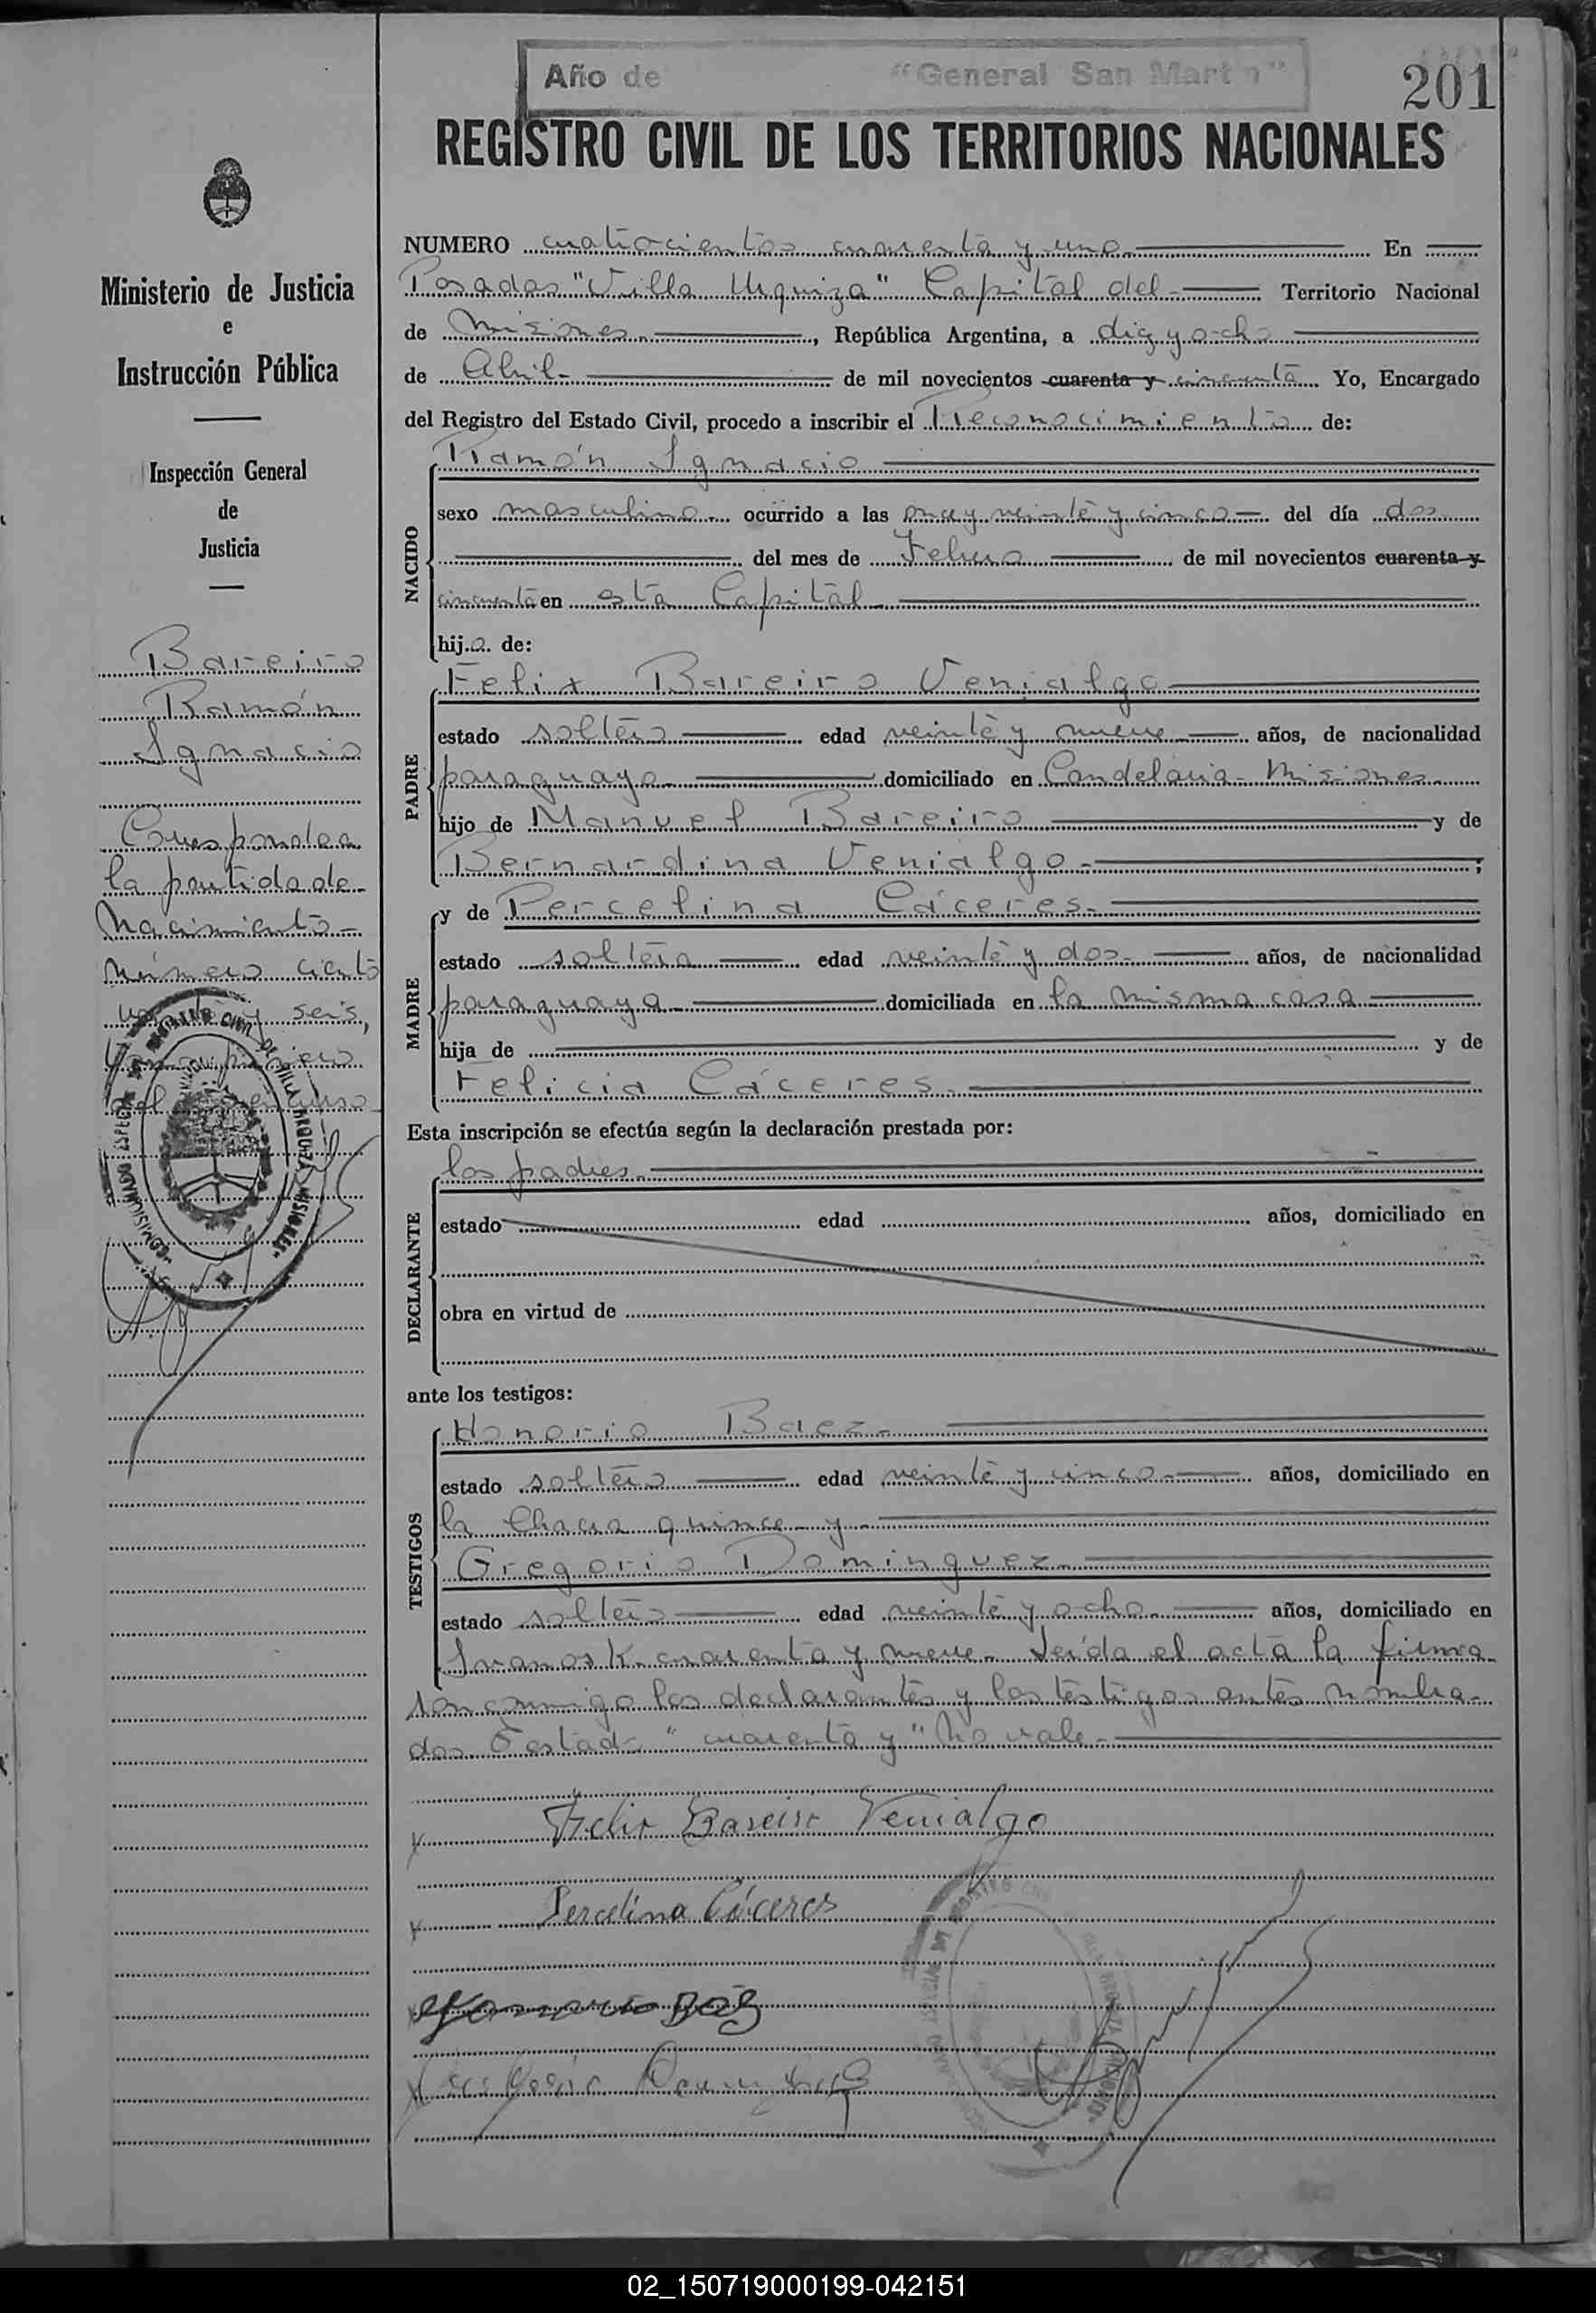 Año de "General San Martin"
201
REGISTRO CIVIL DE LOS TERRITORIOS NACIONALES
Ministerio de Justicia
e
Instrucción Pública
Inspección General
de
Justicia
Bareiro
Ramón
Ignacio
Corresponde a
la partida de
Nacimiento
número ciento
y seis,
COMISIONADO ESPECIAL DEL REGISTRO CIVIL DE VILLA URQUIZA MISIONES
NUMERO cuatrocientos cuarenta y uno En
Posadas "Villa Urquiza" Capital del Territorio Nacional
de Misiones, República Argentina, a diez y ocho
de Abril de mil novecientos cuarenta y cincuenta Yo, Encargado
del Registro del Estado Civil, procedo a inscribir el Reconocimiento de:
NACIDO
Ramón Ignacio
sexo masculino ocurrido a las once y veinte y cinco del día dos
del mes de Febrero de mil novecientos cuarenta y
cincuenta en esta Capital
hijo de:
PADRE
Felix Bareiro Venialgo
estado soltero edad veinte y nueve años, de nacionalidad
paraguaya domiciliado en Candelaria - Misiones
hijo de Manuel Bareiro y de
Bernardina Venialgo ;
MADRE
y de Percelina Cáceres
estado soltera edad veinte y dos años, de nacionalidad
paraguaya domiciliada en la misma casa
hija de y de
Felicia Cáceres
Esta inscripción se efectúa según la declaración prestada por:
DECLARANTE
los padres
estado edad años, domiciliado en
obra en virtud de
ante los testigos:
TESTIGOS
Honorio Baez
estado soltero edad veinte y cinco años, domiciliado en
la Chacra quince y
Gregorio Dominguez
estado soltero edad veinte y ocho años, domiciliado en
cuarenta y nueve. Leída el acta la firma
son conmigo los declarantes y los testigos antes nombra-
dos. Testado "cuarenta y" No vale
Felix Bareiro Venialgo
Percelina Cáceres
02_150719000199-042151